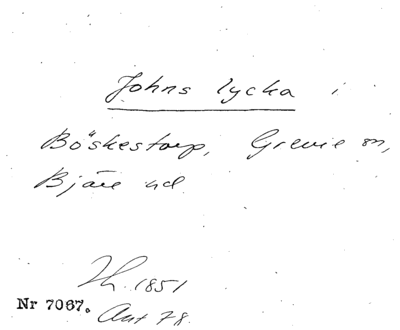 Johns lycka i
Böskestorp, Grevie sn,
Bjäre hd
Lh. 1851
Nr 7067. Ant 78.